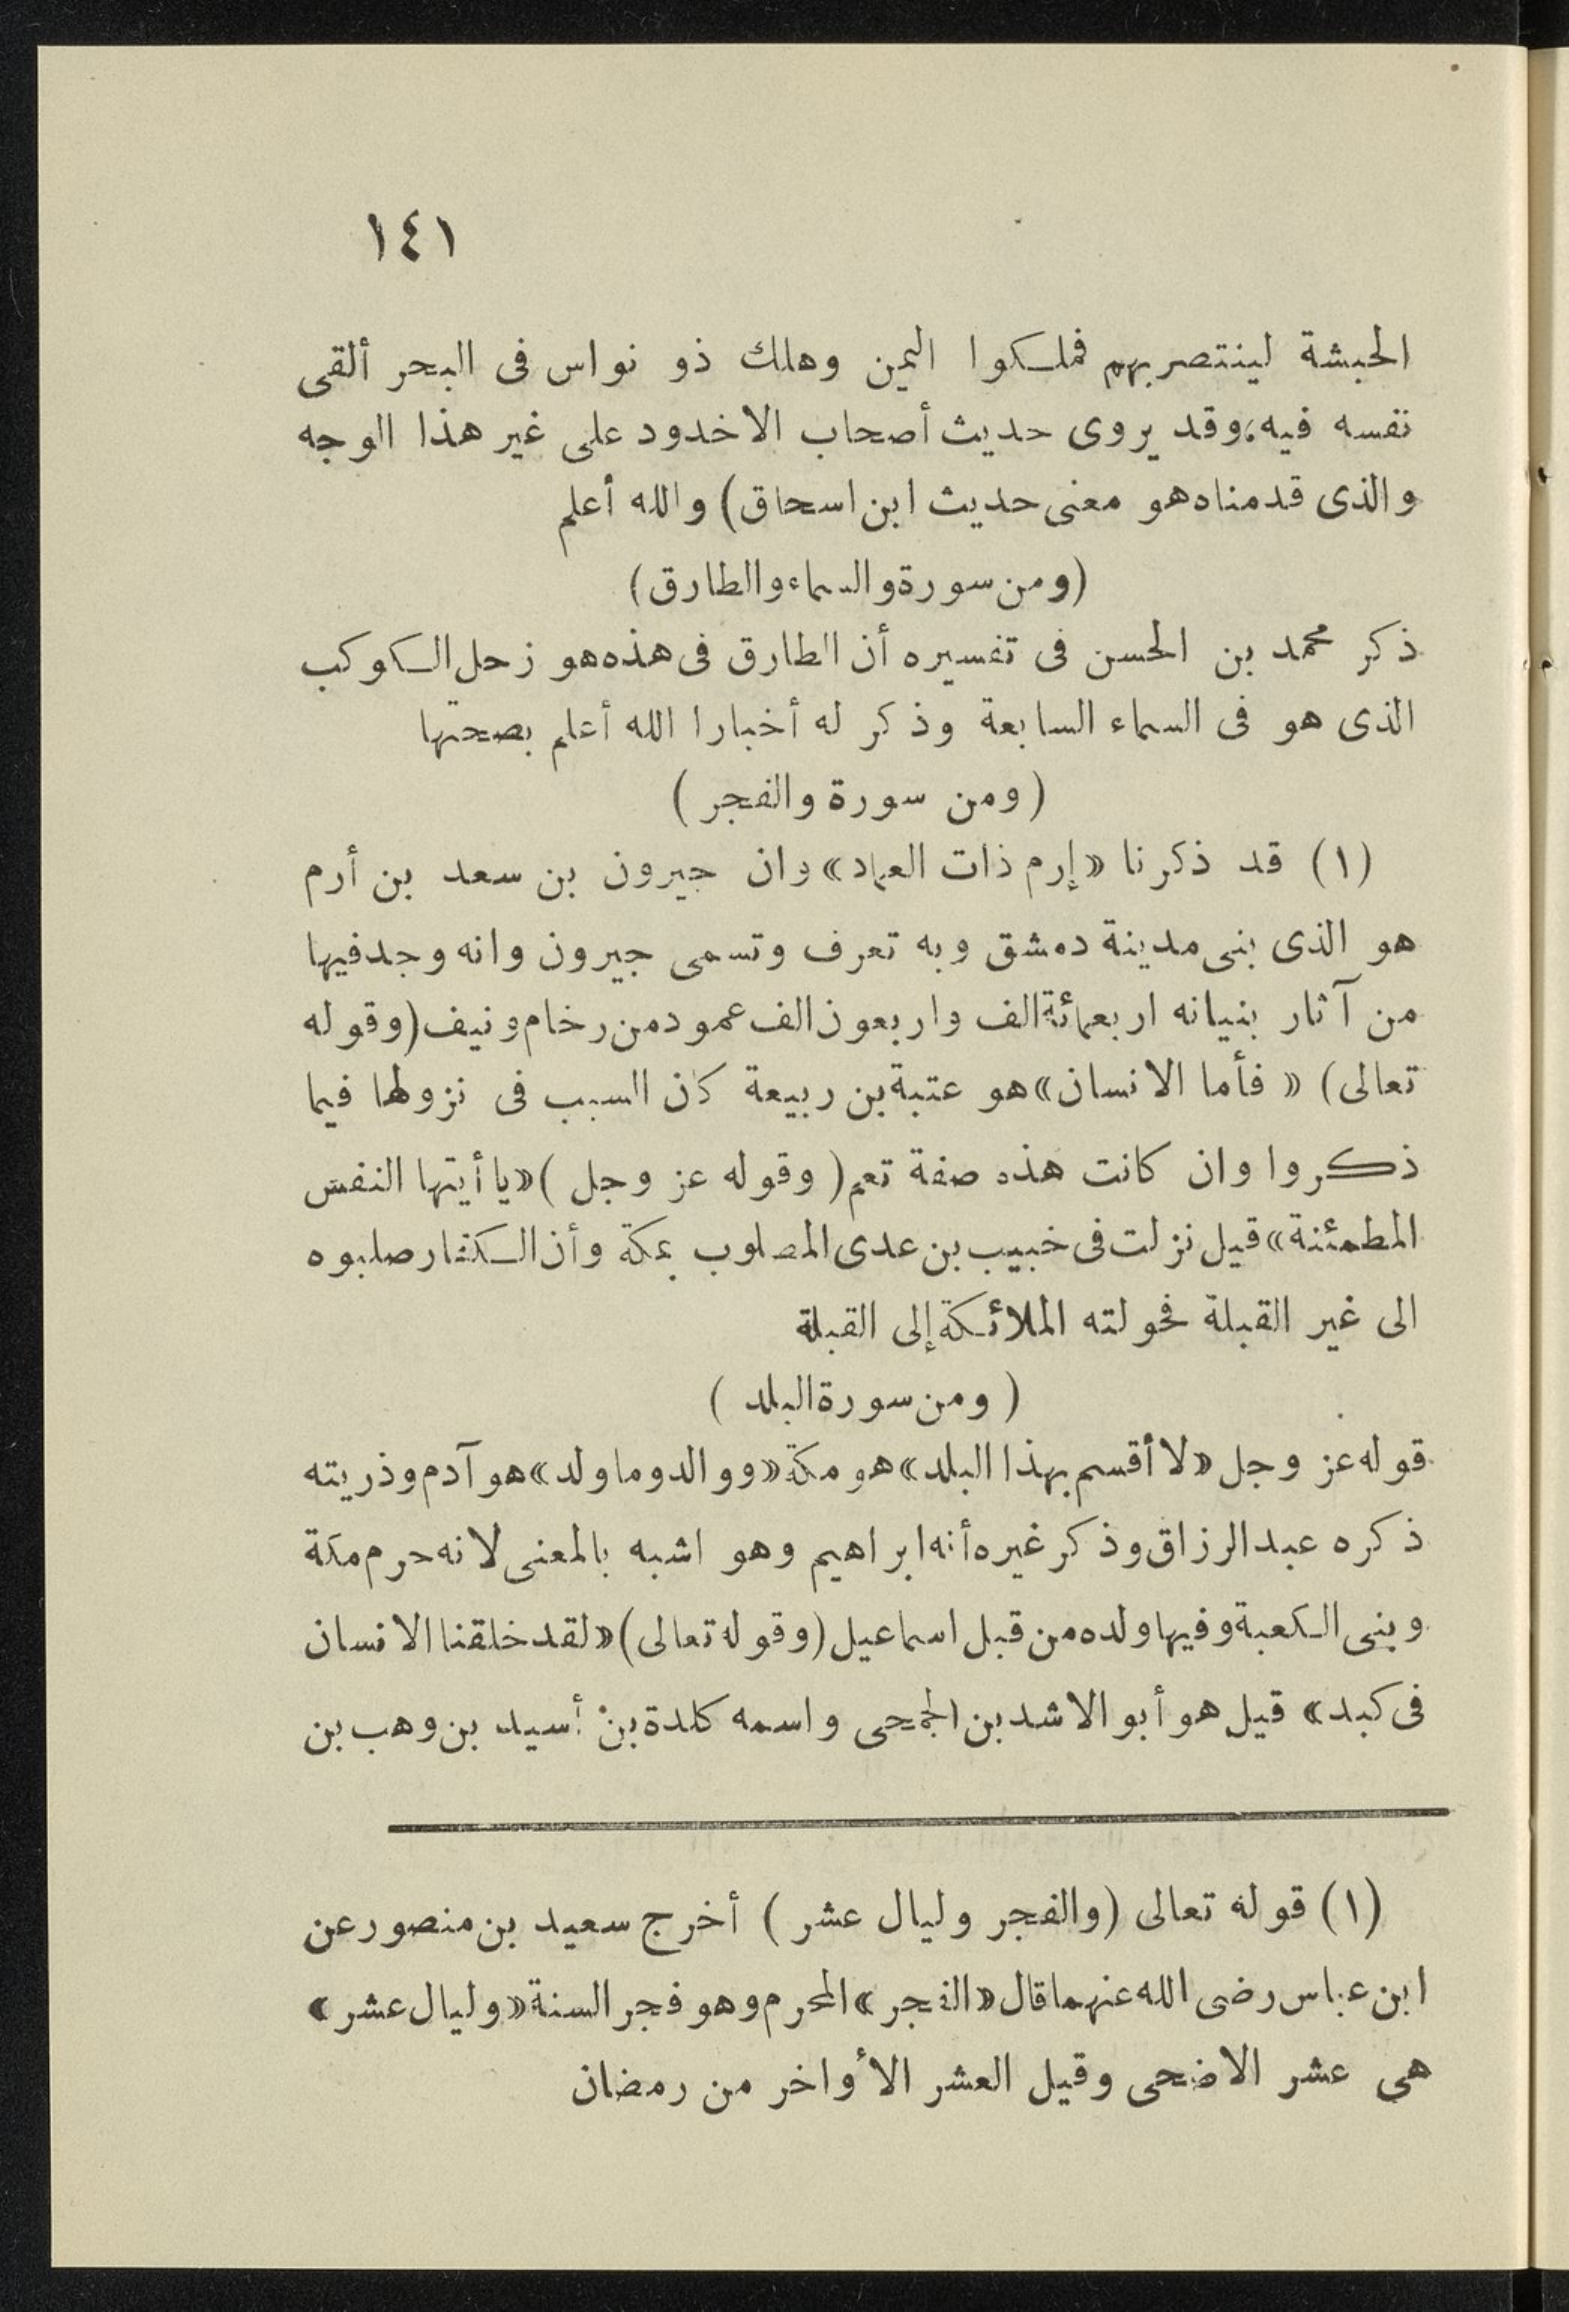 ١٤١
الحبشة لينتصر بهم فملكوا اليمن وهلك ذو نواس فى البحر ألقى
نفسه فيه، وقد يروى حديث أصحاب الاخدود على غير هذا الوجه
والذى قدمناه هو معنى حديث ابن اسحاق) والله أعلم
(ومن سورة والسماء والطارق)
ذكر محمد بن الحسن فى تفسيره أن الطارق فى هذه هو زحل الكوكب
الذى هو فى السماء السابعة وذكر له أخبارا الله أعلم بصحتها
(ومن سورة والفجر)
(١) قد ذكرنا «إرم ذات العماد» وان جيرون بن سعد بن أرم
هو الذى بنى مدينة دمشق وبه تعرف وتسمى جيرون وانه وجد فيها
من آثار بنيانه اربعمائة الف واربعون الف عمود من رخام ونيف (وقوله
تعالى) «فأما الانسان» هو عتبة بن ربيعة كان السبب فى نزولها فيما
ذكروا وان كانت هذه صفة تعم (وقوله عز وجل) «يا أيتها النفس
المطمئنة» قيل نزلت فى خبيب بن عدى المصلوب بمكة وأن الكفار صلبوه
الى غير القبلة فحولته الملائكة إلى القبلة
(ومن سورة البلد)
قوله عز وجل «لا أقسم بهذا البلد» هو مكة «ووالد وما ولد» هو آدم وذريته
ذكره عبد الرزاق وذكر غيره أنه ابراهيم وهو اشبه بالمعنى لانه حرم مكة
وبنى الكعبة وفيها ولده من قبل اسماعيل (وقوله تعالى) «لقد خلقنا الانسان
فى كبد» قيل هو أبو الاشد بن الجمحى واسمه كلدة بن أسيد بن وهب بن
(١) قوله تعالى (والفجر وليال عشر) أخرج سعيد بن منصور عن
ابن عباس رضى الله عنهما قال «الفجر» المحرم وهو فجر السنة «وليال عشر»
هى عشر الاضحى وقيل العشر الأواخر من رمضان